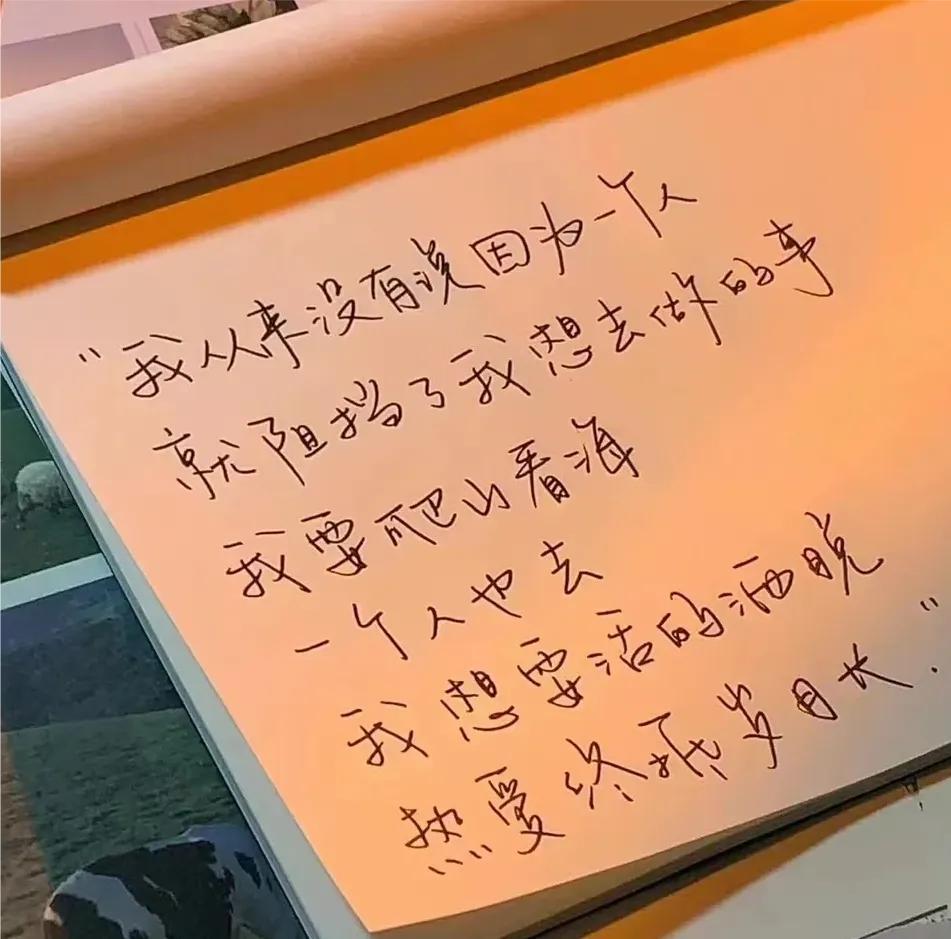 “我从来没有说因为一个人
就阻挡了我想去做的事
我要爬山看海
一个人也去
我想要活的洒脱
热爱终抵岁月长.”